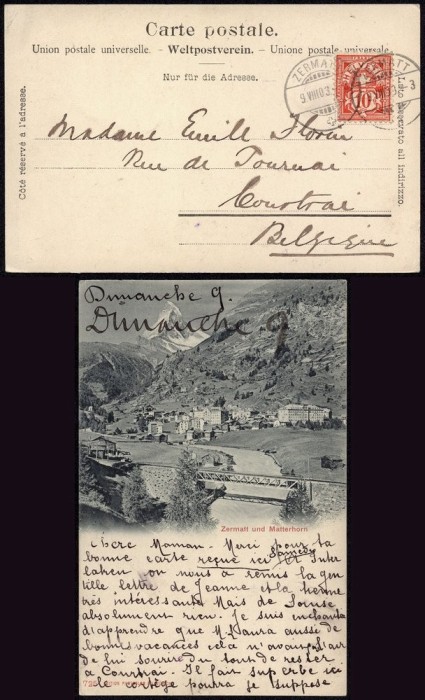 Carte postale.
Union postale universelle. - Weltpostverein. - Unione postale universale
Nur für die Adresse.
Côté réservé à l'adresse.
Lato riservato all' indirizzo.
ZERMATT
9.VIII.03.
10
Madame Emile
Rue de Tournai
Courtrai
Belgique
Dimanche 9.
Dimanche 9
Zermatt und Matterhorn
Chère Maman - Merci pour ta
bonne carte reçue ici Samedi
laken on nous a remis la gen
tille lettre de Jeanne et la tienne
très intéressante Mais de
absolument rien. Je suis enchanté
d'apprendre que M. aussi de
bonnes vacances cela n'avait l'air
de lui sourire du tout de rester
à Courtrai. Il fait superbe ici
le cortège pourra je suppose